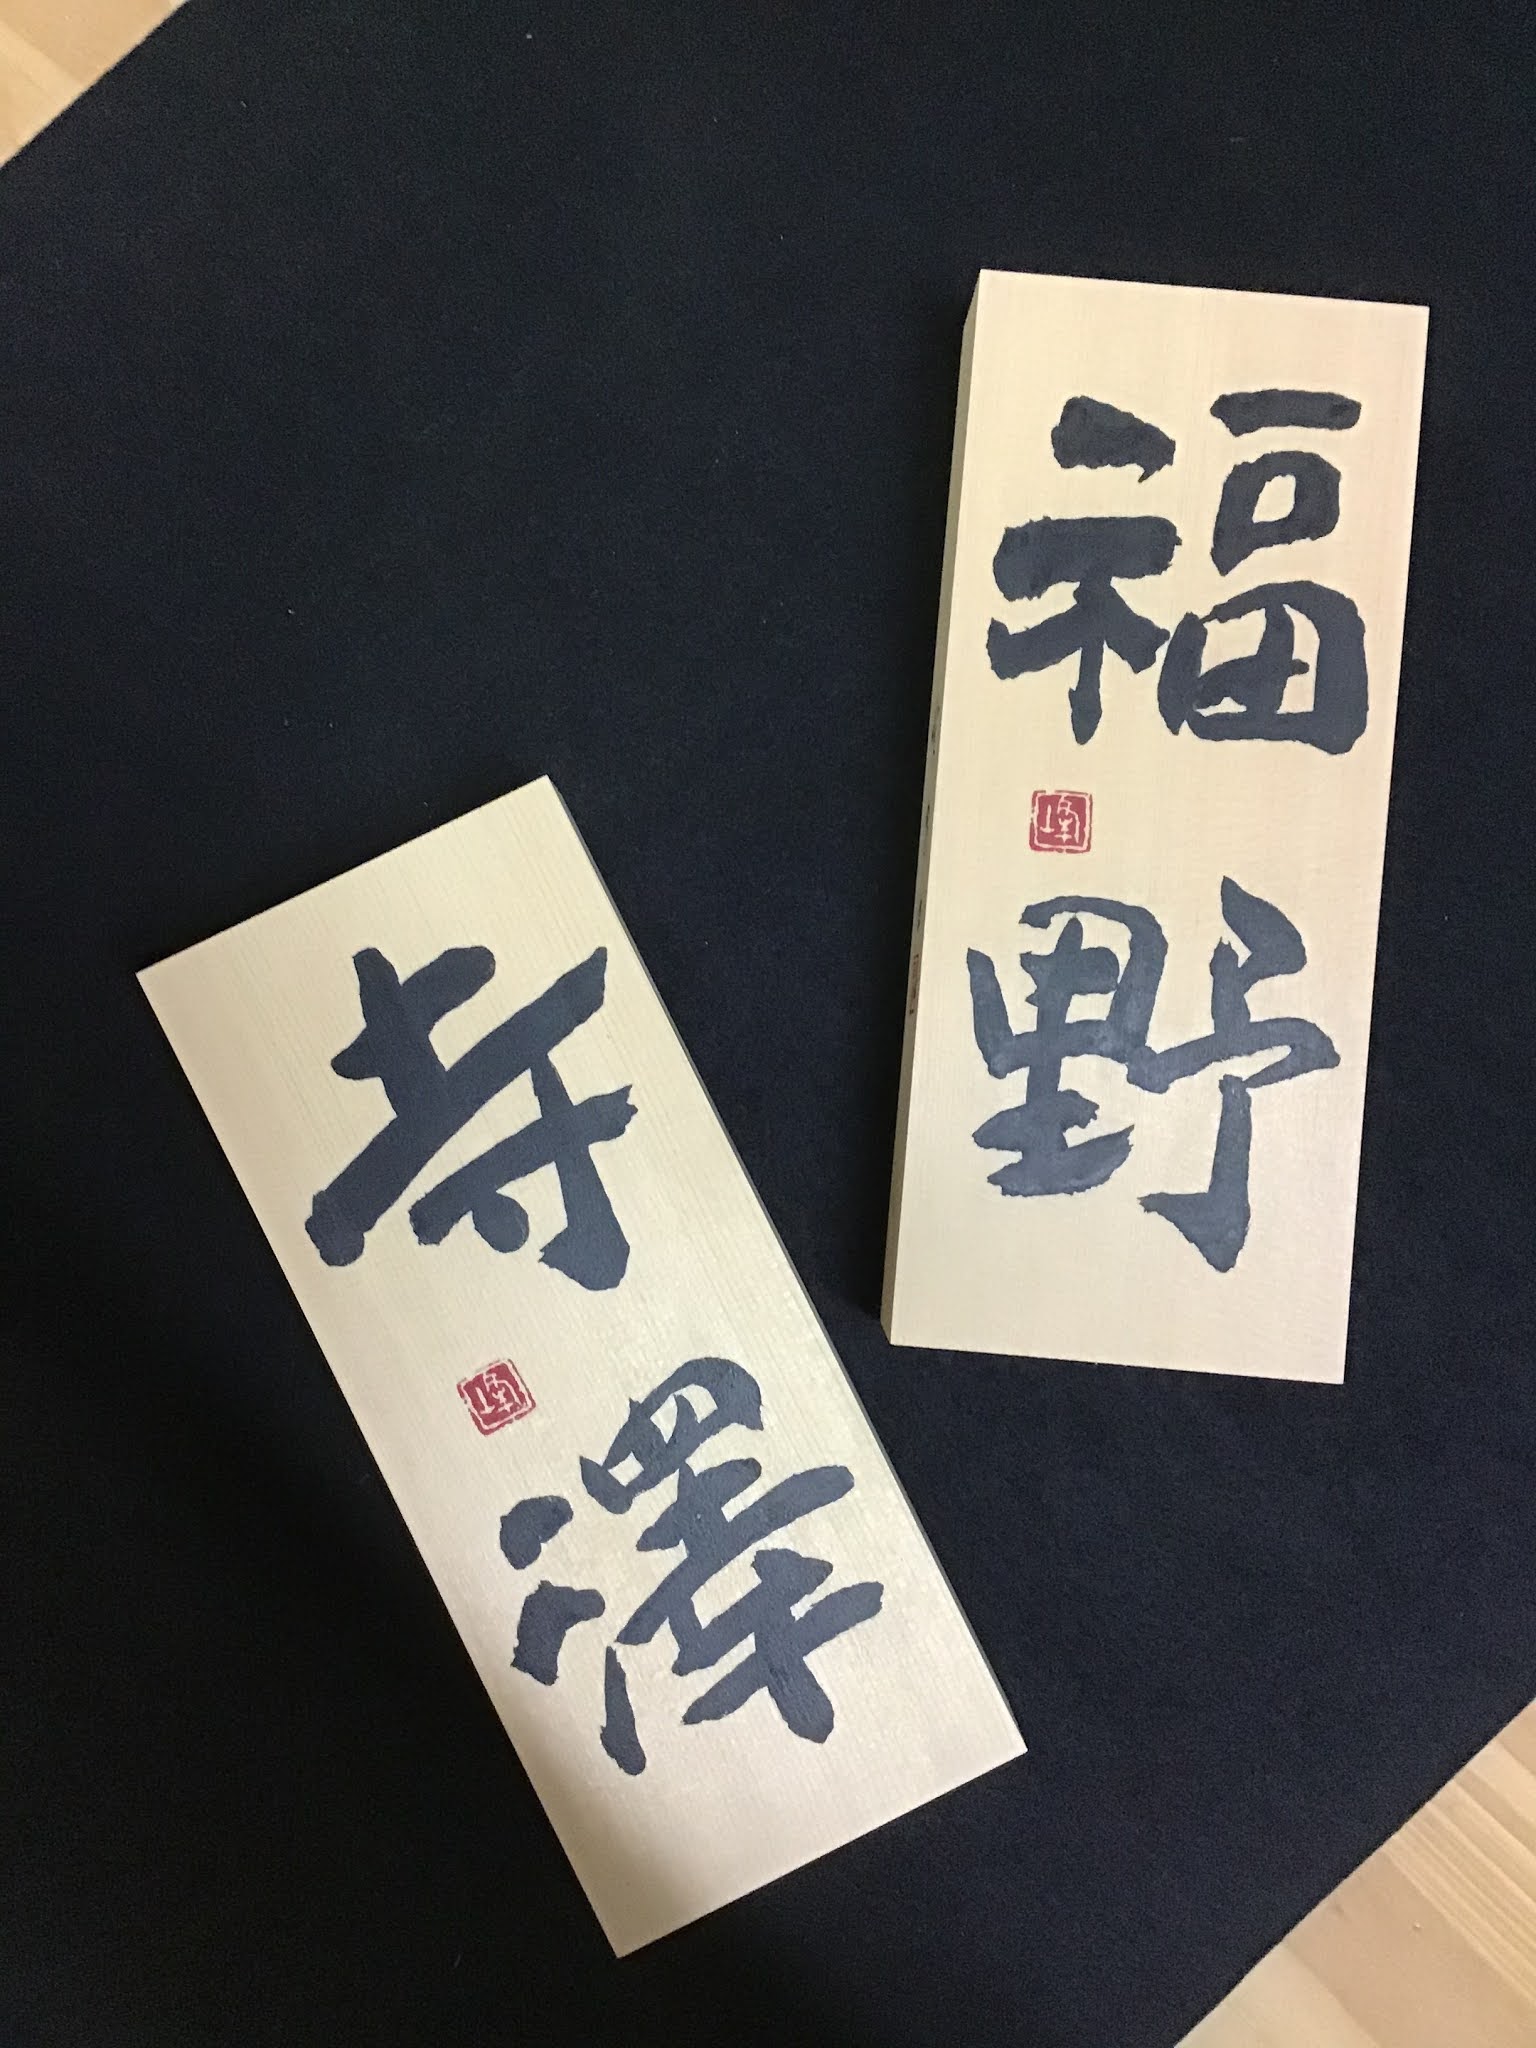 福野
寺澤